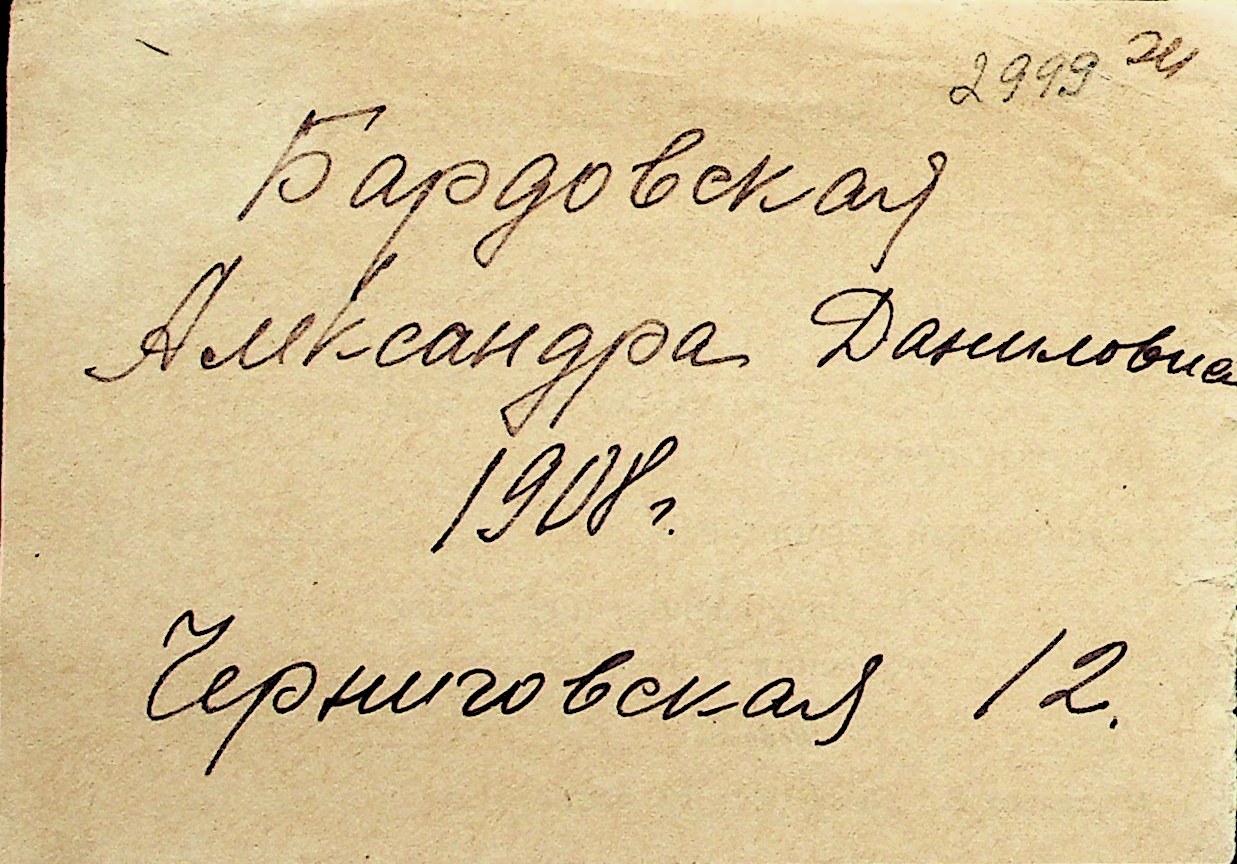 2999
Бардовская
Александра Даниловна
1908 г.
Черниговская 12.